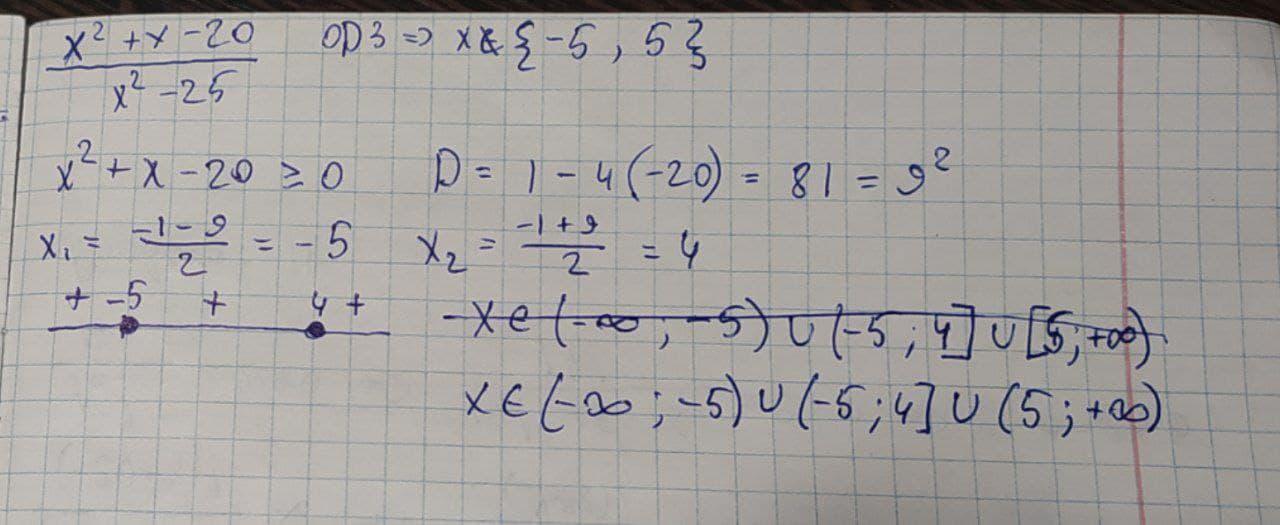 x² + x - 20 / x² - 25 ОДЗ ⇒ x ∉ {-5, 5}
x² + x - 20 ≥ 0 D = 1 - 4(-20) = 81 = 9²
x₁ = (-1 - 9)/2 = -5 x₂ = (-1 + 9)/2 = 4
+ -5 + 4 +
x ∈ (-∞; -5) ∪ (-5; 4] ∪ [5; +∞)
x ∈ (-∞; -5) ∪ (-5; 4] ∪ (5; +∞)